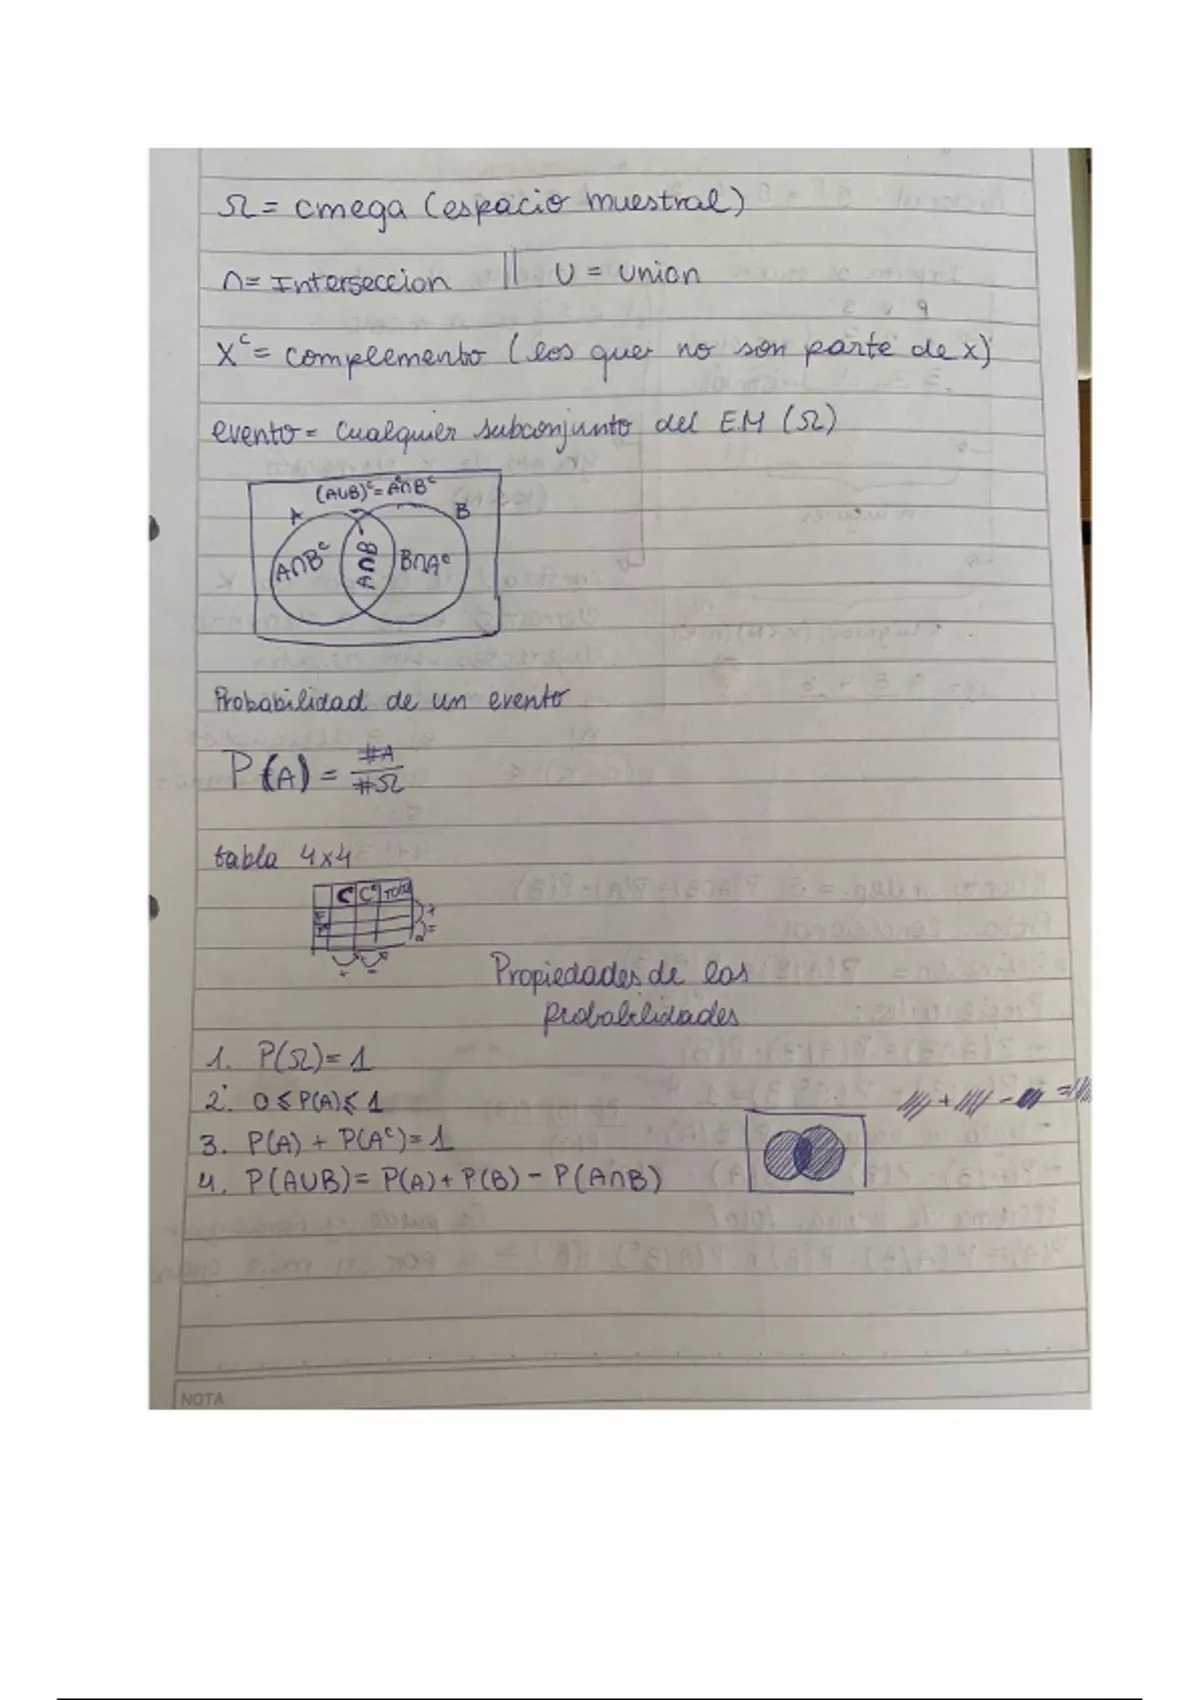 Ω = omega (espacio muestral)
∩ = Interseccion || U = union
X^c = complemento (los que no son parte de x)
evento = cualquier subconjunto del E.M (Ω)
(A∪B)^c = A^c∩B^c
A B
A∩B^c A∩B B∩A^c
Probabilidad de un evento
P(A) = #A / #Ω
tabla 4x4
C C^c Total
+ =
+ =
Propiedades de las
probabilidades
1. P(Ω) = 1
2. 0 ≤ P(A) ≤ 1
3. P(A) + P(A^c) = 1
4. P(A∪B) = P(A) + P(B) - P(A∩B)
NOTA